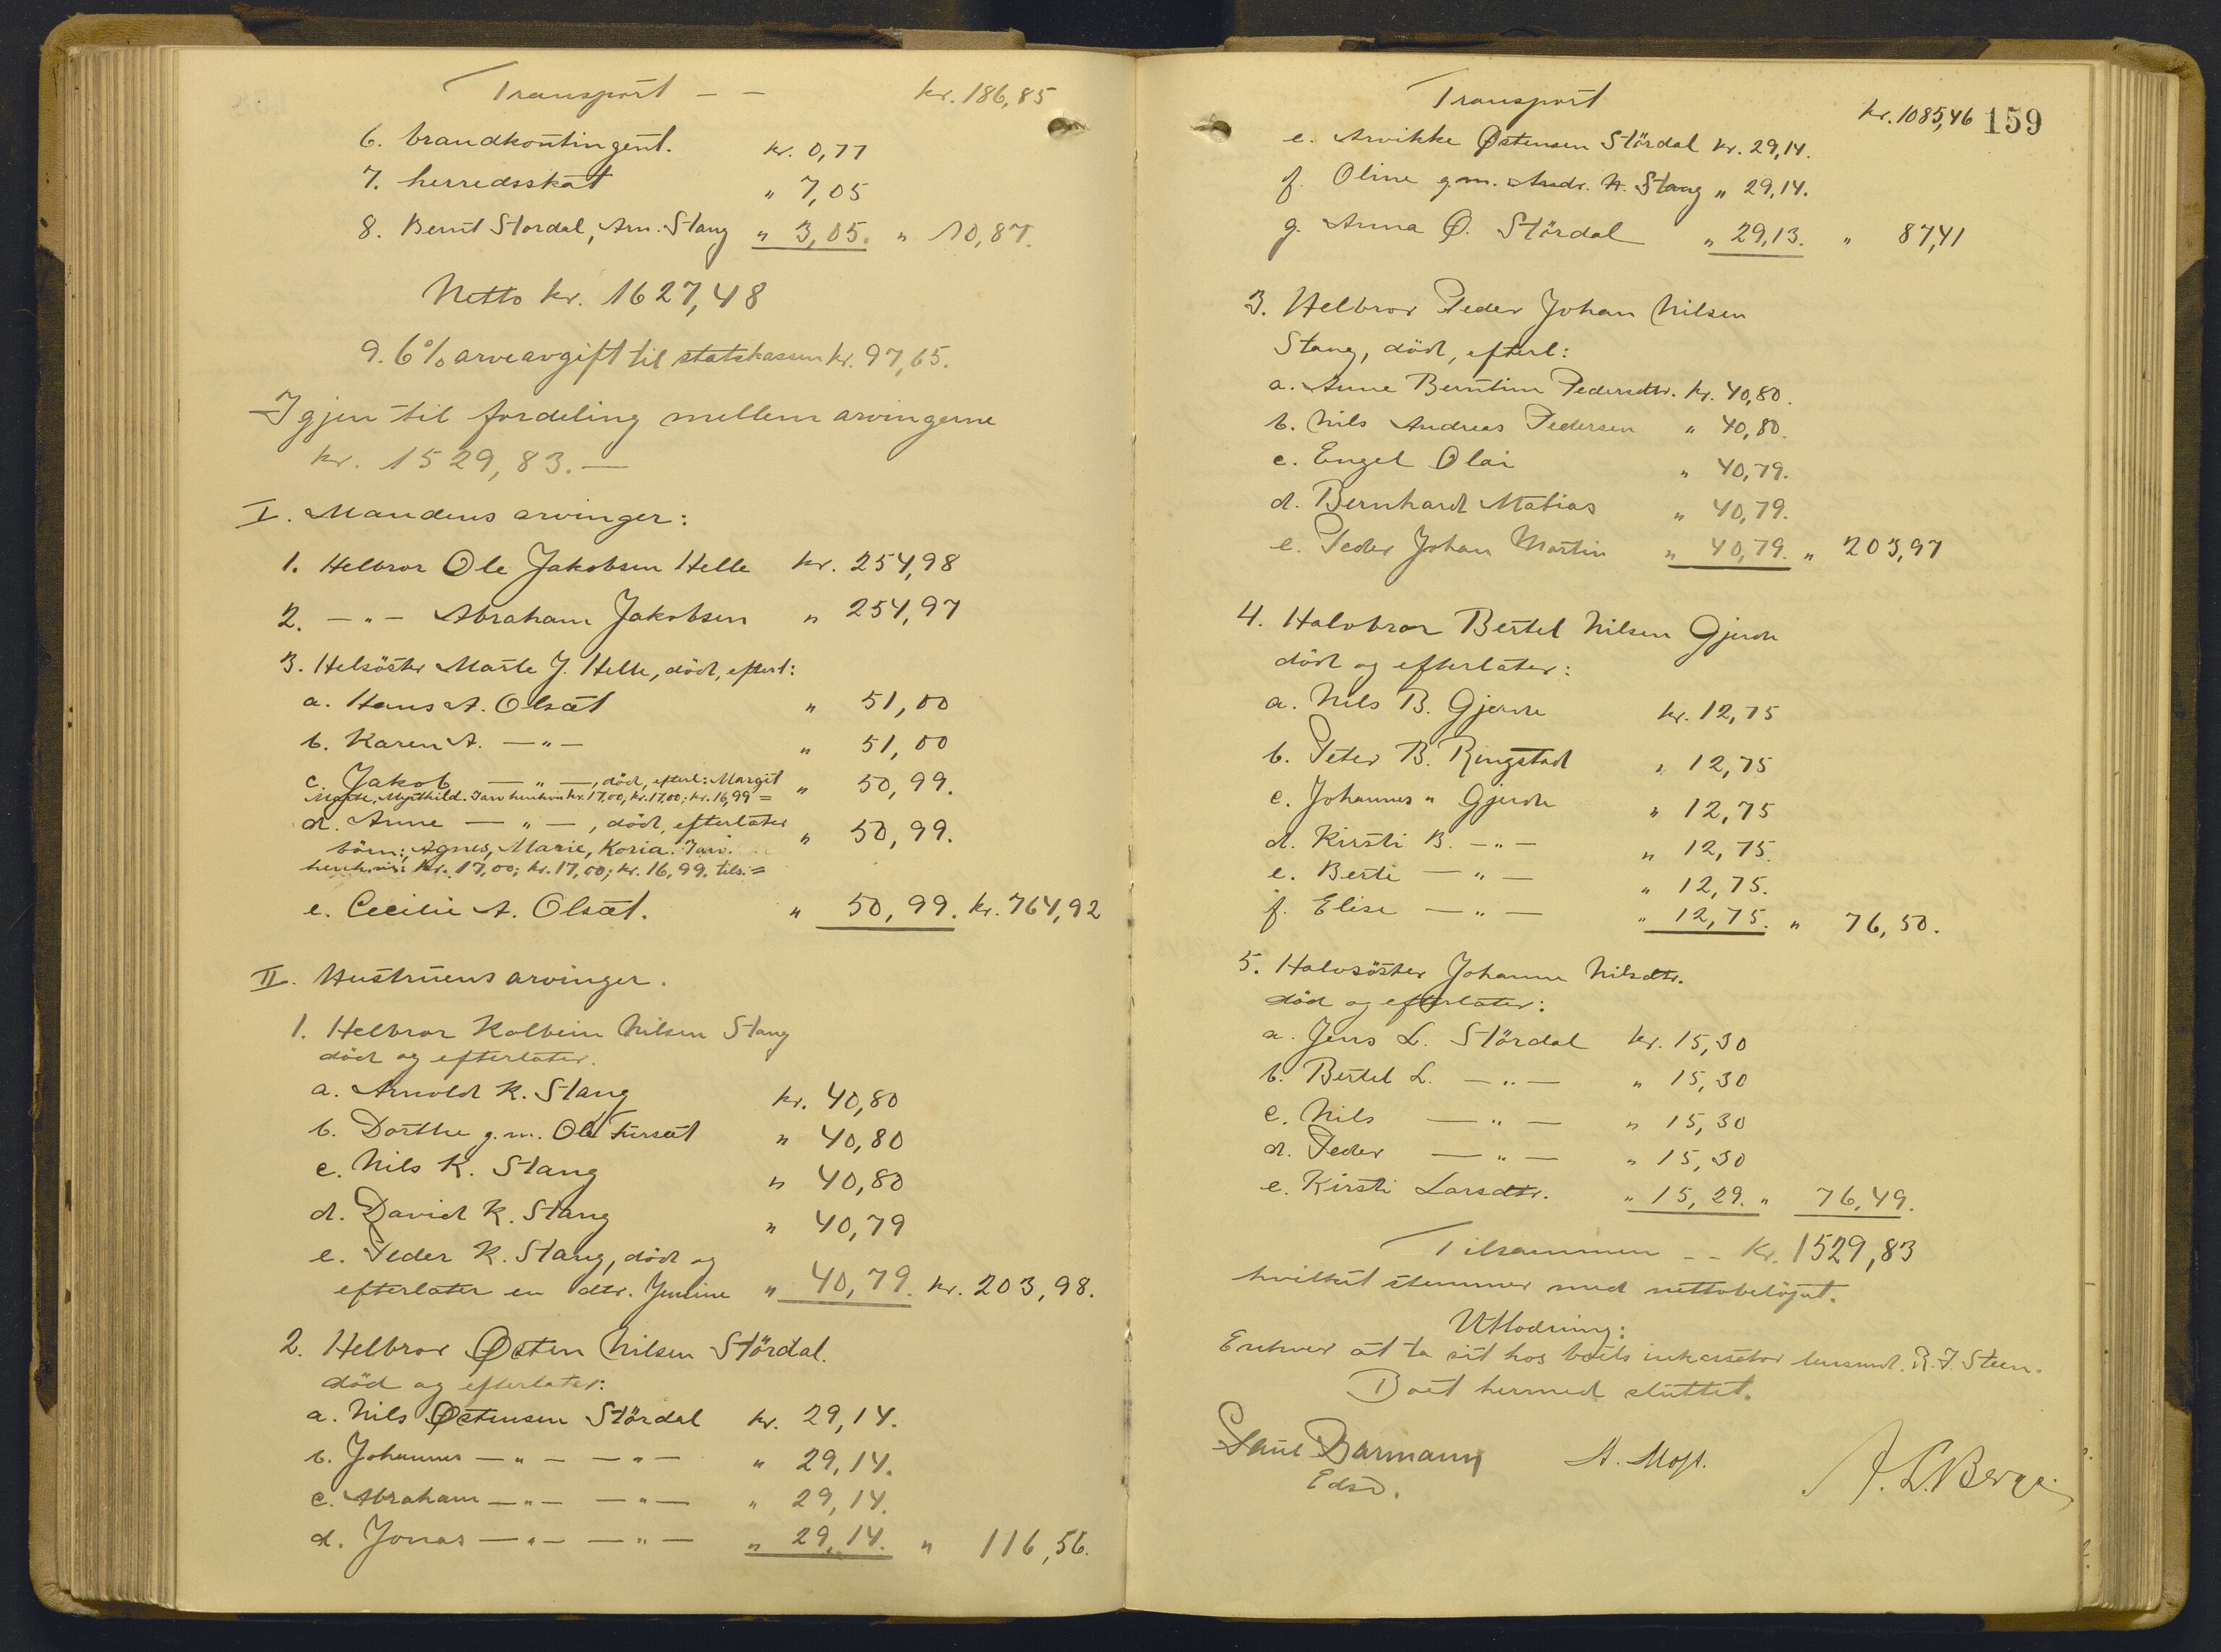 Transport - - kr. 186,85
6. brandkontingent. kr. 0,77
7. herredsskat " 7,05
8. Bernt Stordal, Arn. Stang " 3,05. " 10,87.
Netto kr. 1627,48
9. 6% arveavgift til statskassen kr. 97,65.
Igjen til fordeling mellem arvingerne
kr. 1529,83.—
I. Mandens arvinger:
1. Helbror Ole Jakobsen Helle kr. 254,98
2. —"— Abraham Jakobsen " 254,97
3. Helsöster Marte J. Helle, död, efterl:
a. Hans A. Olsæt " 51,00
b. Karen A. —"— " 51,00
c. Jakob —"—, död, efterl: Margit " 50,99.
Marte, Mythild. Tarv henhvis kr. 17,00; kr. 17,00; kr. 16,99 =
d. Anne —"—, död, efterlater " 50,99.
börn: Agnes, Marie, Koria. Tarv.
henhvis: kr. 17,00; kr. 17,00; kr. 16,99. tils. =
e. Cecilie A. Olsæt. " 50,99. kr. 764,92
II. Hustruens arvinger.
1. Helbror Kolbein Nilsen Stang
död og efterlater.
a. Arnold K. Stang kr. 40,80
b. Dorthe g.m. Ole Fursæt " 40,80
c. Nils K. Stang " 40,80
d. David K. Stang " 40,79
e. Peder K. Stang, död og
efterlater en dtr. Jensine " 40,79. kr. 203,98.
2. Helbror Østen Nilsen Stördal.
död og efterlater:
a. Nils Østensen Stördal kr. 29,14.
b. Johannes —"— —"— " 29,14.
c. Abraham —"— —"— " 29,14.
d. Jonas —"— —"— " 29,14. " 116,56.
159
Transport kr. 1085,46
e. Arvikke Østensen Stördal kr. 29,14.
f. Oline g.m. Andr. N. Stang " 29,14.
g. Anna Ø. Stördal " 29,13. " 87,41
3. Helbror Peder Johan Nilsen
Stang, död, efterl:
a. Anne Berntine Pedersdtr. kr. 40,80.
b. Nils Andreas Pedersen " 40,80.
c. Engel Olai " 40,79.
d. Bernhard Matias " 40,79.
e. Peder Johan Martin " 40,79. " 203,97
4. Halvbror Bertel Nilsen Gjerde
död og efterlater:
a. Nils B. Gjerde kr. 12,75
b. Peter B. Ringstad " 12,75
c. Johannes " Gjerde " 12,75
d. Kirsti B. —"— " 12,75.
e. Berte —"— " 12,75.
f. Elise —"— " 12,75. " 76,50.
5. Halvsöster Johanne Nilsdtr.
död og efterlater:
a. Jens L. Stördal kr. 15,30
b. Bertel L. —"— " 15,30
c. Nils —"— " 15,30
d. Peder —"— " 15,30
e. Kirsti Larsdtr. " 15,29. " 76,49.
Tilsammen -- kr. 1529,83
hvilket stemmer med nettobelöpet.
Utlodning:
Enhver at ta sit hos boets inkassator lensmd. R. J. Steen.
Boet hermed sluttet.
Paul Barmann A. Most. L. Berge
Edsv.